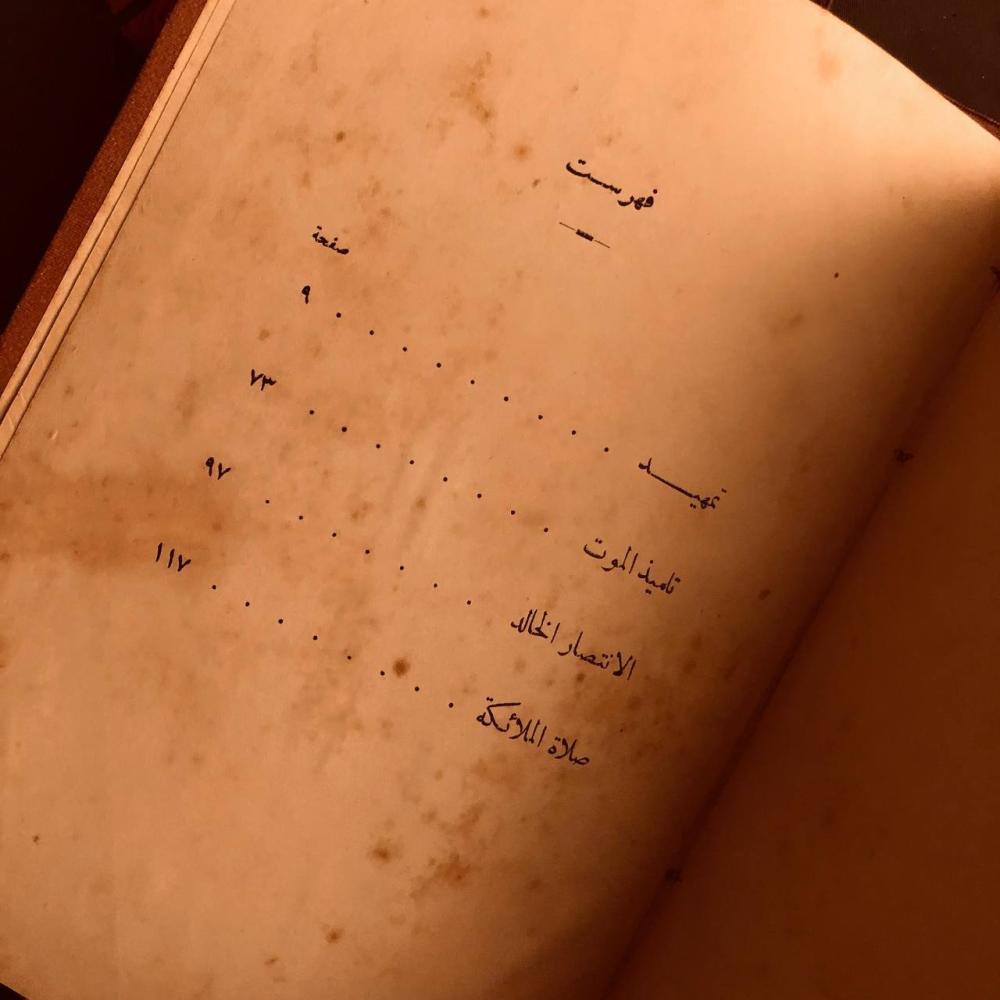 فهرست
صفحة
تمهيد . . . . . . . . . ٩
تلميذ الموت . . . . . . . . ٧٣
الانتصار الخالد . . . . . . . ٩٧
صلاة الملائكة . . . . . . . . ١١٧